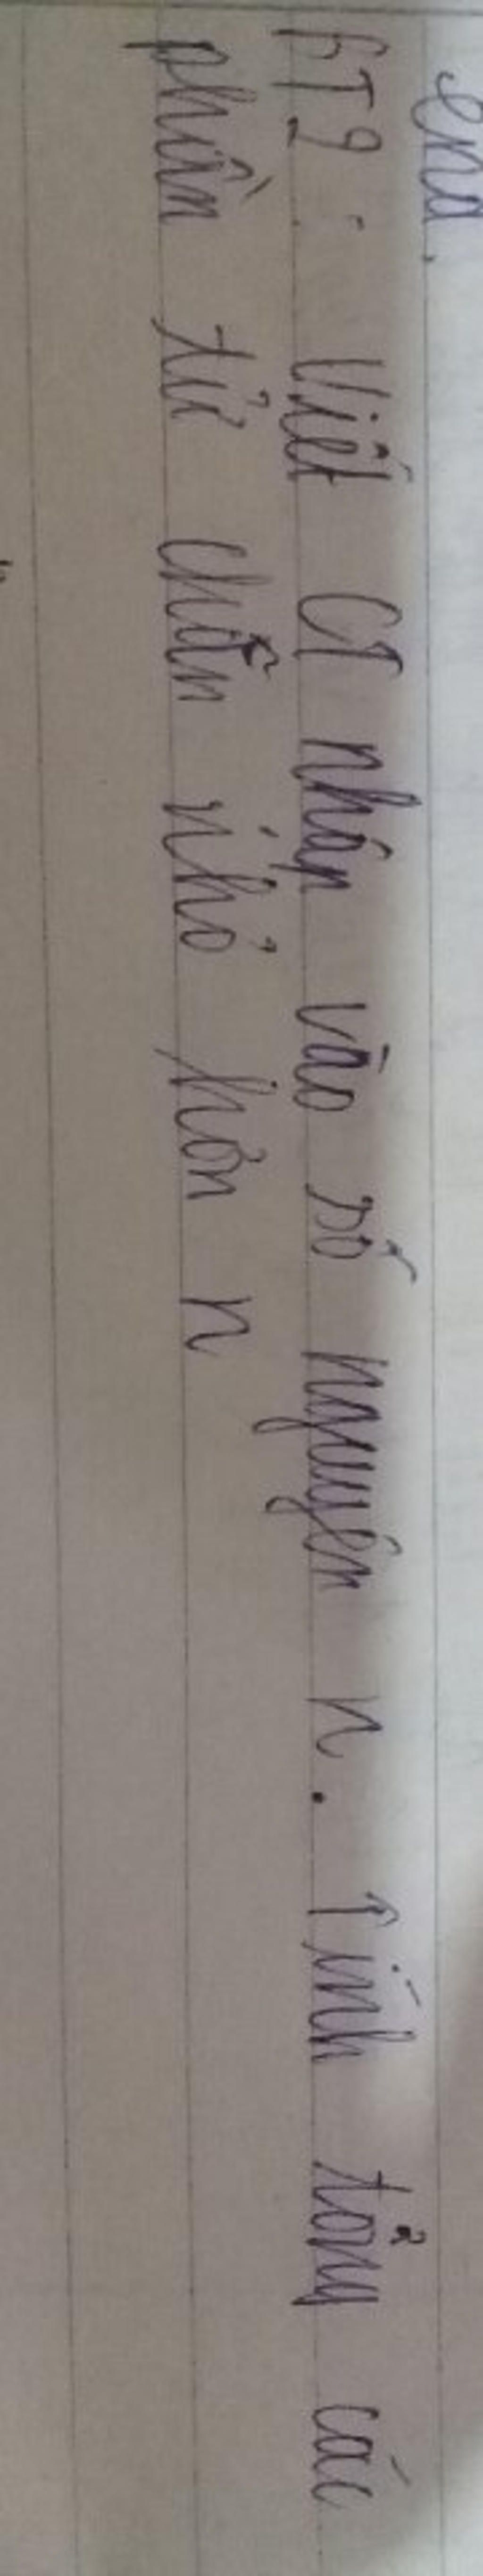 end.
BT2: Viết CT nhập vào số nguyên n. Tính tổng các
phần tử chẵn nhỏ hơn n